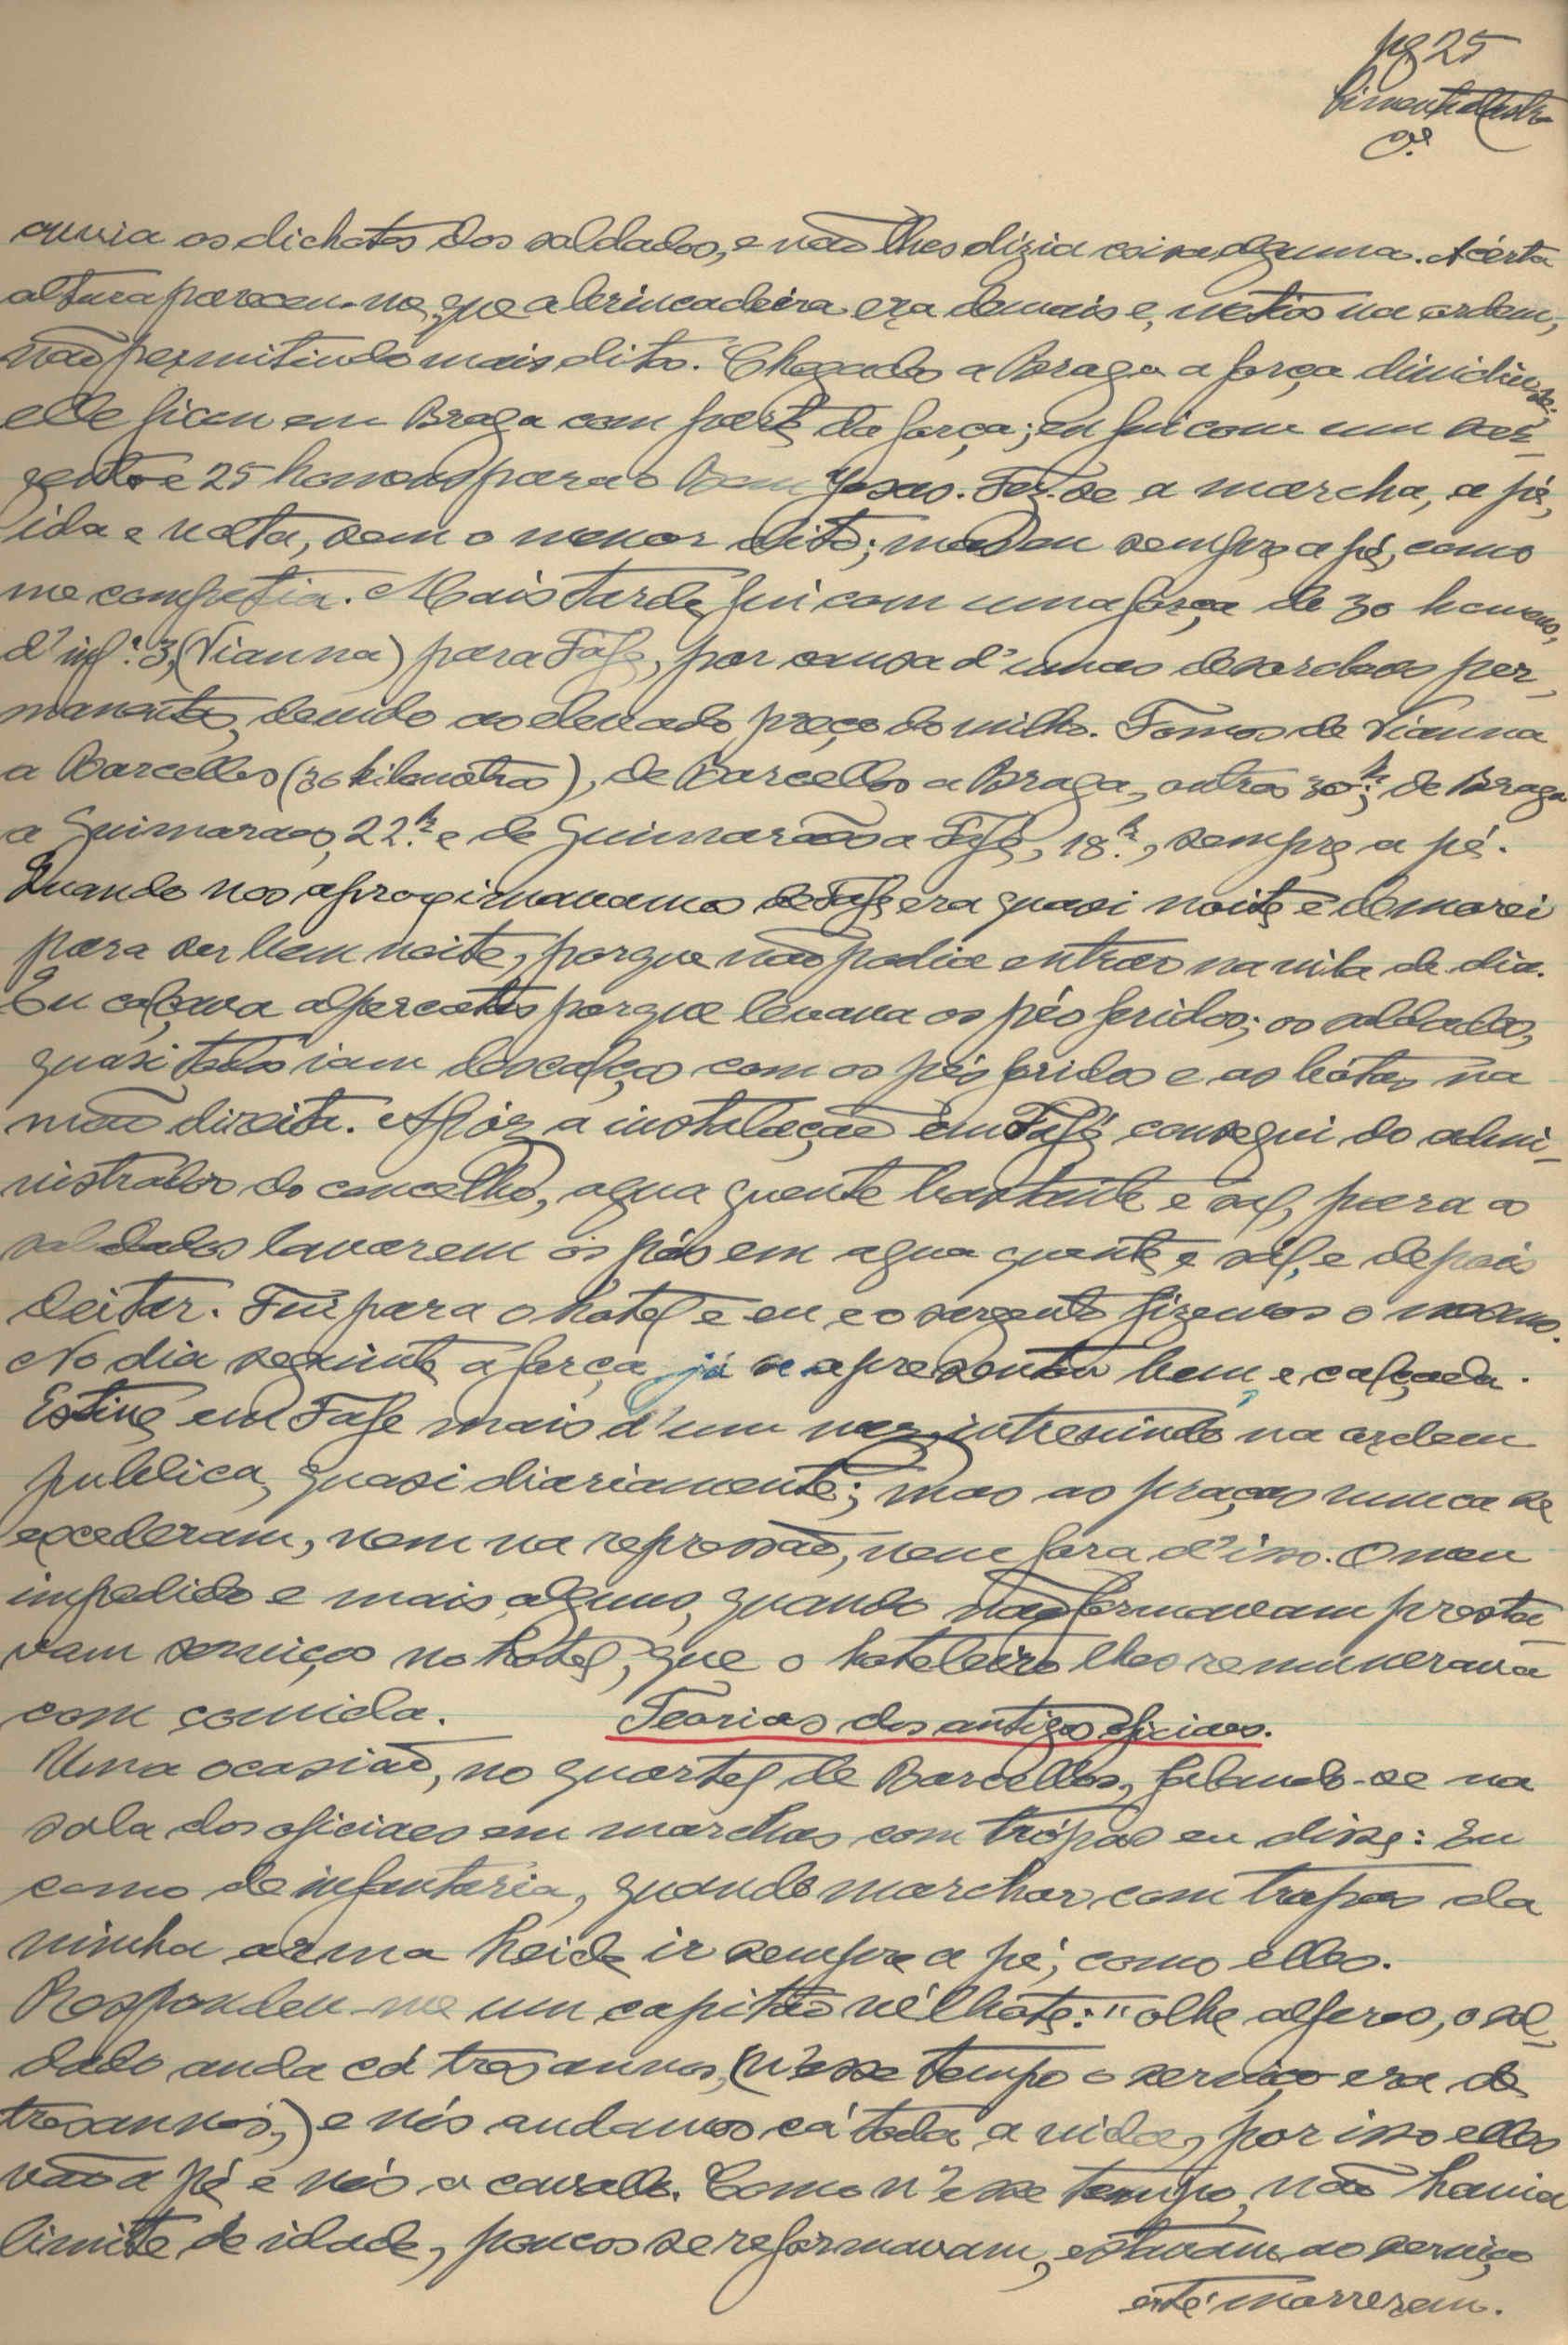 pg 25
Pimenta de Castro
ouvia os dichotes dos soldados, e não lhes dizia coisa alguma. A certa
altura pareceu-me, que a brincadeira era demais e, meti-os na ordem,
não permitindo mais ditos. Chegados a Braga a força dividiu-se:
elle ficou em Braga com parte da força; eu fui com um sar-
gento e 25 homens para o Bom Jesus. Fez-se a marcha, a pé,
ida e volta, sem o menor dito; mas eu sempre a pé, como
me competia. Mais tarde, fui com uma força de 30 homens,
d'inf.ª 3, (Vianna) para Fafe, por causa d'umas desordens per-
manentes, devido ao elevado preço do milho. Fomos de Vianna
a Barcellos (30 kilometros), de Barcellos a Braga, outros 30 k.; de Braga
a Guimaraes, 22 k. e de Guimarães a Fafe, 18 k., sempre a pé.
Quando nos aproximavamos de Fafe era quasi noite e demorei
para ser bem noite, porque não podia entrar na vila de dia.
Eu calçava alpercatas porque levava os pés feridos; os soldados,
quasi todos iam descalços com os pés feridos e as bótas na
mão direita. Apóz a instalação em Fafe, consegui do admi-
nistrador do concelho, agua quente bastante e sal, para os
soldados lavarem os pés em agua quente e sal, e depois
deitar. Fui para o hotel e eu e o sargento fizemos o mesmo.
No dia seguinte a força já se apresentou bem, e calçada.
Estive em Fafe mais d'um mez, intrevindo na ordem
publica, quasi diariamente; mas as praças nunca se
excederam, nem na repressão, nem fora d'isso. O meu
impedido e mais alguns, quando não formavam presta-
vam serviços no hotel, que o hoteleiro lhes remunerava
com comida. Teorias dos antigos oficiaes.
Uma ocasião, no quartel de Barcellos, falando-se na
sala dos oficiaes em marchas com trópas eu disse: Eu
como de infantaria, quando marchar com tropas da
minha arma heide ir sempre a pé, como elles.
Respondeu-me um capitão vélhote: "olhe alferes, o sol-
dado anda cá tres annos, (n'esse tempo o serviço era de
tres annos,) e nós andamos cá toda a vida, por isso elles
vão a pé e nós a cavallo. Como n'esse tempo, não havia
limite de idade, poucos se reformavam, estavam ao serviço
até morrerem.